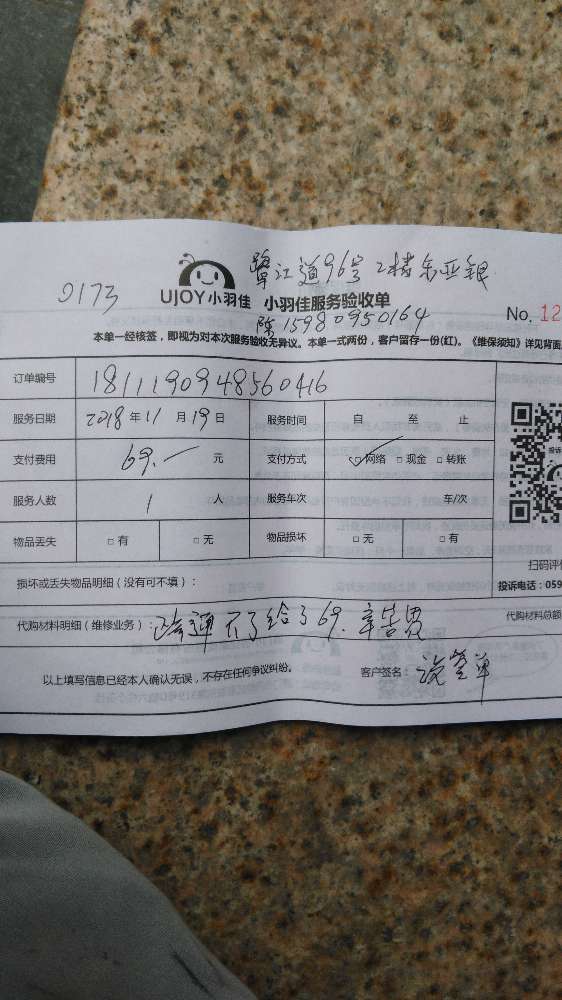 鹭江道96号2楼东亚银
0173
UJOY小羽佳 小羽佳服务验收单
陈15980950164
No. 12
本单一经核签，即视为对本次服务验收无异议。本单一式两份，客户留存一份(红)。《维保须知》详见背面
订单编号 1811190948560416
服务日期 2018 年 11 月 19 日 服务时间 自 至 止
支付费用 69.一 元 支付方式 ☑网络 □现金 □转账
服务人数 1 人 服务车次 车/次
物品丢失 □有 □无 物品损坏 □无 □有
扫码评
损坏或丢失物品明细（没有可不填）：
投诉电话：059
代购材料明细（维修业务）： 疏通不了给了69. 辛苦费
代购材料总额
以上填写信息已经本人确认无误，不存在任何争议纠纷。 客户签名： 没签单